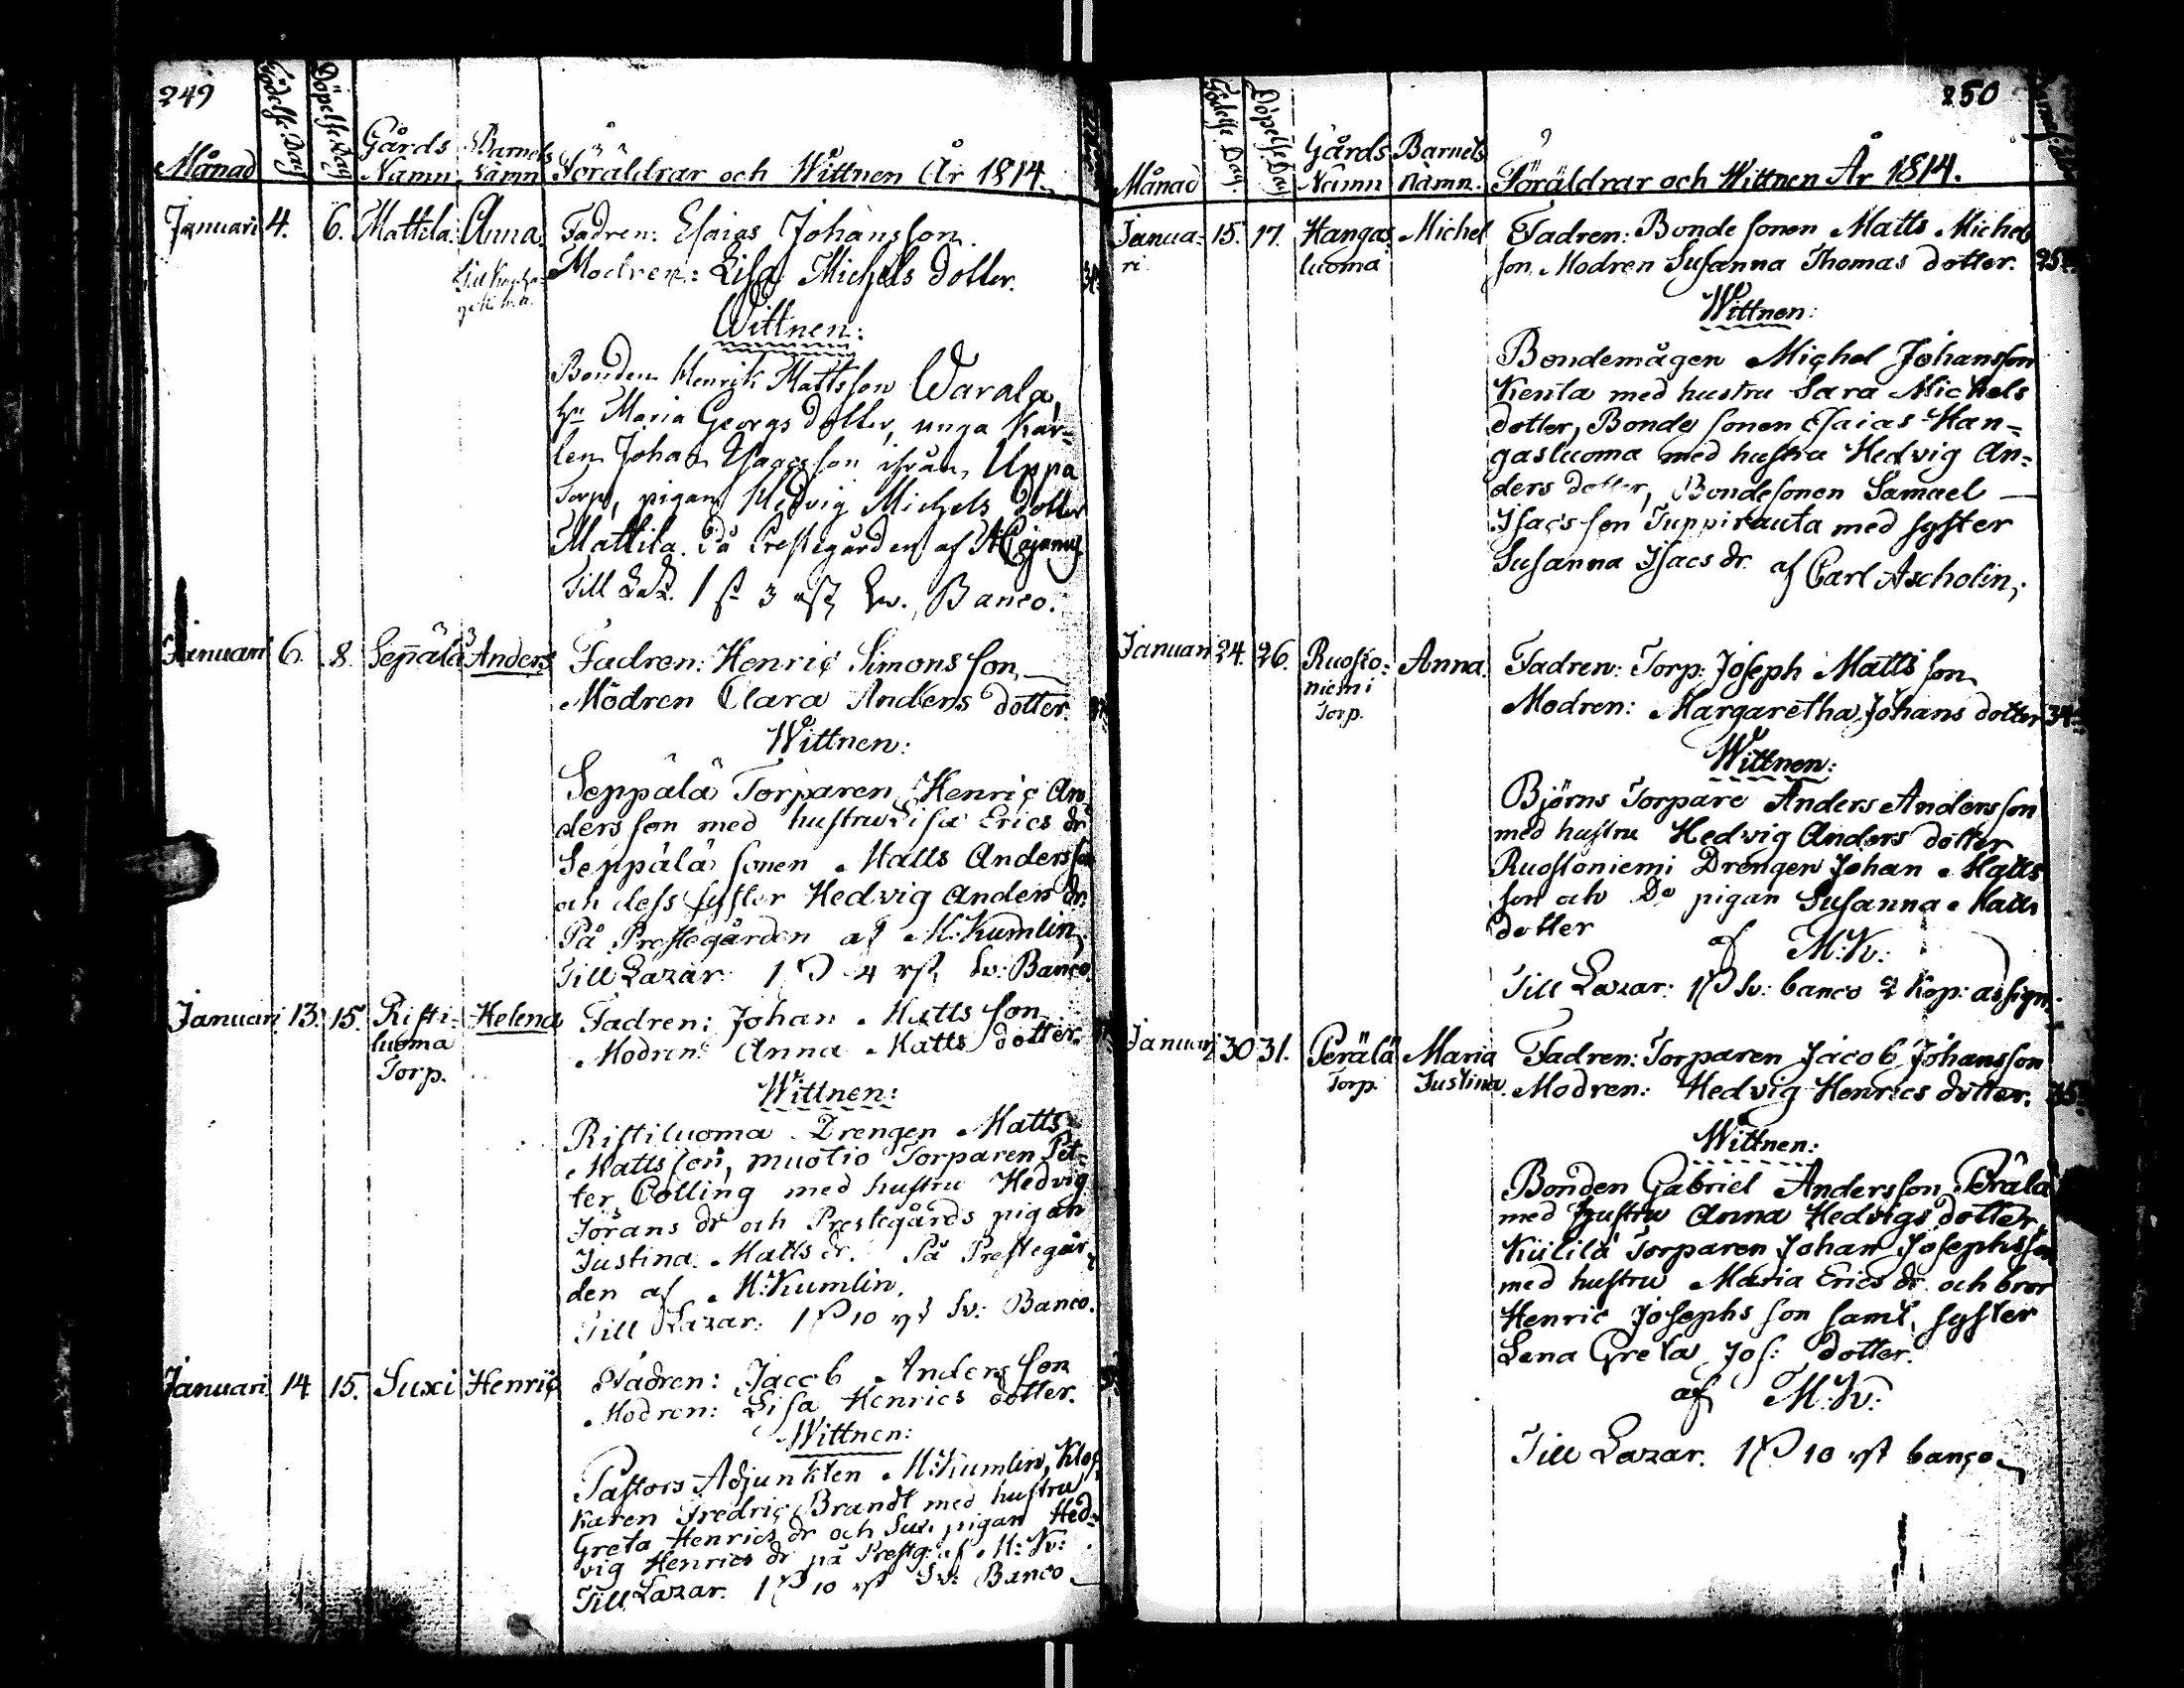 249
Månad
Födelse Dag
Döpelse Dag
Gårds Namn
Barnets Namn
Föräldrar och Wittnen År 1814.
Januari 4. 6. Mattila. Anna. Fadren: Esaias Johansson.
Modren: Lisa Michels dotter.
Wittnen:
Bonden Henrik Mattsson Warala,
hu Maria Georgs dotter, unga Kar=
len Johan Isaacsson ifrån Uppa
Torp, pigan Hedvig Michels dotter
Mattila. På Prestegården af
Till 1 3 Banco.
Januari 6. 8. Seppälä Anders Fadren: Henric Simonsson,
Modren Clara Anders dotter.
Wittnen:
Seppälä Torparen Henric An
dersson med hustru Lisa Erics dr
Seppälä sonen Matts Andersson
och dess syster Hedvig Anders dr.
På Prestegården af M: Kumlin,
Till Lazar: 1 4 Sv: Banco
Januari 13. 15. Risti= Helena Fadren: Johan Mattsson
luoma Modren: Anna Matts dotter.
Torp.
Wittnen:
Ristiluoma Drengen Matts
Mattsson, Muotio Torparen Pet=
ter Colling med hustru Hedvig
Jörans dr och Prestegårds pigan
Justina Matts dr. På Prestegår
den af M: Kumlin.
Till Lazar: 1 10 Sv: Banco.
Januari 14 15. Suxi Henric Fadren: Jacob Andersson
Modren: Lisa Henrics dotter.
Wittnen:
Pastors Adjunkten M: Kumlin, Kloc
karen Fredric Brandt med hustru
Greta Henrics dr och Suxi pigan Hed=
vig Henrics dr på Prestg: af M: K:
Till Lazar. 1 10 Sv: Banco
250
Månad
Födelse Dag.
Döpelse Dag
Gårds Namn
Barnets Namn.
Föräldrar och Wittnen År 1814.
Janua= 15. 17. Hangas Michel Fadren: Bonde sonen Matts Michels
ri luoma son Modren Susanna Thomas dotter. 25
Wittnen:
Bondemågen Michel Johansson
Kenta med hustru Sara Michels
dotter, Bonde sonen Esaias Han=
gasluoma med hustru Hedvig An=
ders dotter, Bondesonen Samuel
Isacsson Tuppirauta med syster
Susanna Isacs dr. af Carl Ascholin,
Januari 24. 26. Ruosto= Anna. Fadren: Torp: Joseph Mattsson
niemi Modren: Margaretha Johans dotter 34
Torp.
Wittnen:
Björns Torpare Anders Andersson
med hustru Hedvig Anders dotter
Ruostoniemi Drengen Johan Matts
son och Do pigan Susanna Matts
dotter
af M: K:
Till Lazar: 1 Sv: banco 2 Kop: assign:
Januari 30 31. Perälä Maria Fadren: Torparen Jacob Johansson
Torp. Justina. Modren: Hedvig Henrics dotter. 35
Wittnen:
Bonden Gabriel Andersson Perälä
med hustru Anna Hedvigs dotter,
Kiililä Torparen Johan Josephsson
med hustru Maria Erics dr. och bror
Henric Josephs son samt syster
Lena Greta Jos: dotter.
af M: K:
Till Lazar. 1 10 banco